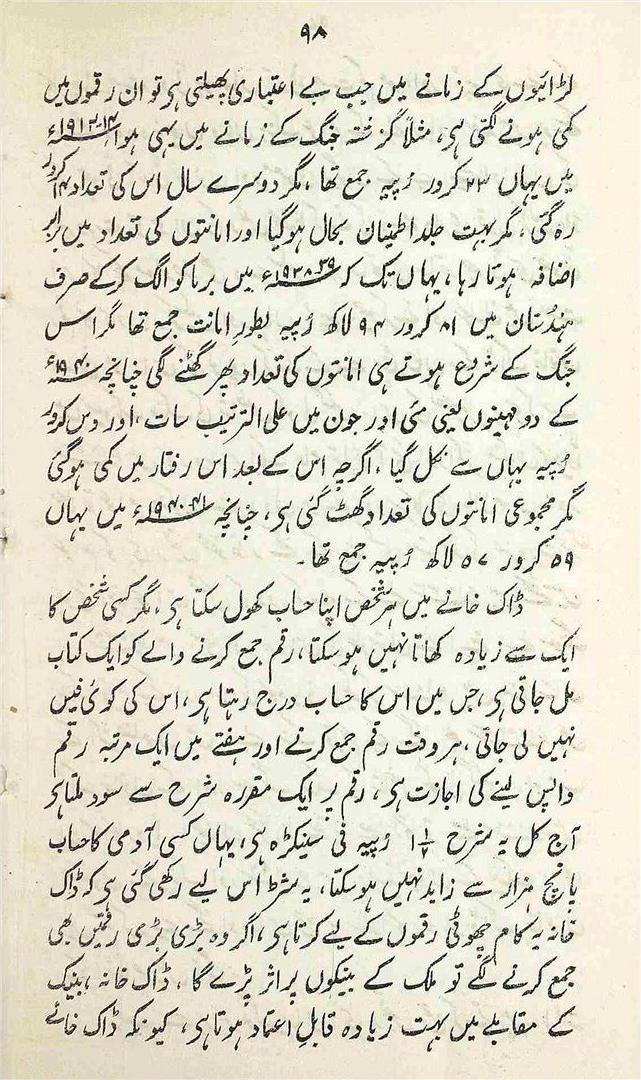 ۹۸
لڑائیوں کے زمانے میں جب بے اعتباری پھیلتی ہی تو ان رقموں میں
کمی ہونے لگتی ہی، مثلاً گزشتہ جنگ کے زمانے میں یہی ہوا ۱۴-۱۹۱۳ء
میں یہاں ۲۳ کرور رُپیہ جمع تھا، مگر دوسرے سال اس کی تعداد ۱۴ کرور
رہ گئی، مگر بہت جلد اطمینان بحال ہوگیا اور امانتوں کی تعداد میں برابر
اضافہ ہوتا رہا، یہاں تک کہ ۳۹-۱۹۳۸ء میں برما کو الگ کرکے صرف
ہندُستان میں ۸۱ کرور ۹۴ لاکھ رُپیہ بطورِ امانت جمع تھا مگر اس
جنگ کے شروع ہوتے ہی امانتوں کی تعداد پھر گھٹنے لگی چنانچہ ۱۹۴۰ء
کے دو مہینوں یعنی مئی اور جون میں علی الترتیب سات، اور دس کرور
رُپیہ یہاں سے نکل گیا، اگرچہ اس کے بعد اس رفتار میں کمی ہوگئی
مگر مجموعی امانتوں کی تعداد گھٹ گئی ہی، چنانچہ ۴۱-۱۹۴۰ء میں یہاں
۵۹ کرور ۵۷ لاکھ رُپیہ جمع تھا۔
ڈاک خانے میں ہر شخص اپنا حساب کھول سکتا ہی، مگر کسی شخص کا
ایک سے زیادہ کھاتا نہیں ہوسکتا، رقم جمع کرنے والے کو ایک کتاب
مل جاتی ہی، جس میں اس کا حساب درج رہتا ہی، اس کی کوئی فیس
نہیں لی جاتی، ہر وقت رقم جمع کرنے اور ہفتے میں ایک مرتبہ رقم
واپس لینے کی اجازت ہی، رقم پر ایک مقررہ شرح سے سود ملتا ہی
آج کل یہ شرح ۱ ۱/۲ رُپیہ فی سینکڑہ ہی، یہاں کسی آدمی کا حساب
پانچ ہزار سے زاید نہیں ہوسکتا، یہ شرط اس لیے رکھی گئی ہی کہ ڈاک
خانہ یہ کام چھوٹی رقموں کے لیے کرتا ہی، اگر وہ بڑی بڑی رقمیں بھی
جمع کرنے لگے تو ملک کے بینکوں پر اثر پڑے گا، ڈاک خانہ، بینک
کے مقابلے میں بہت زیادہ قابلِ اعتماد ہوتا ہی، کیونکہ ڈاک خانے